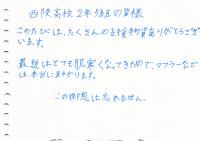 西陵高校2年7組の皆様
このたびは、たくさんの支援物資ありがとうござ
います。
最近はとても肌寒くなってきたので、マフラーなど
は本当に助かります。
この御恩は忘れません。